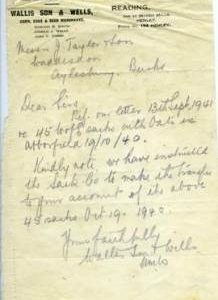 WALLIS SON & WELLS,
CORN, COKE & SEED MERCHANTS.
READING,
Messrs J. Taylor & Son
Waddesdon
Aylesbury Bucks
Dear Sirs
Ref. our letter 13th Sept 1941
re 45 sacks with Oats ex
Arborfield 19/10/40.
Kindly note we have instructed
the Sack Co to make the transfer
to your account of the above
45 sacks Oct 19. 1940.
Yours faithfully
Wallis Son & Wells